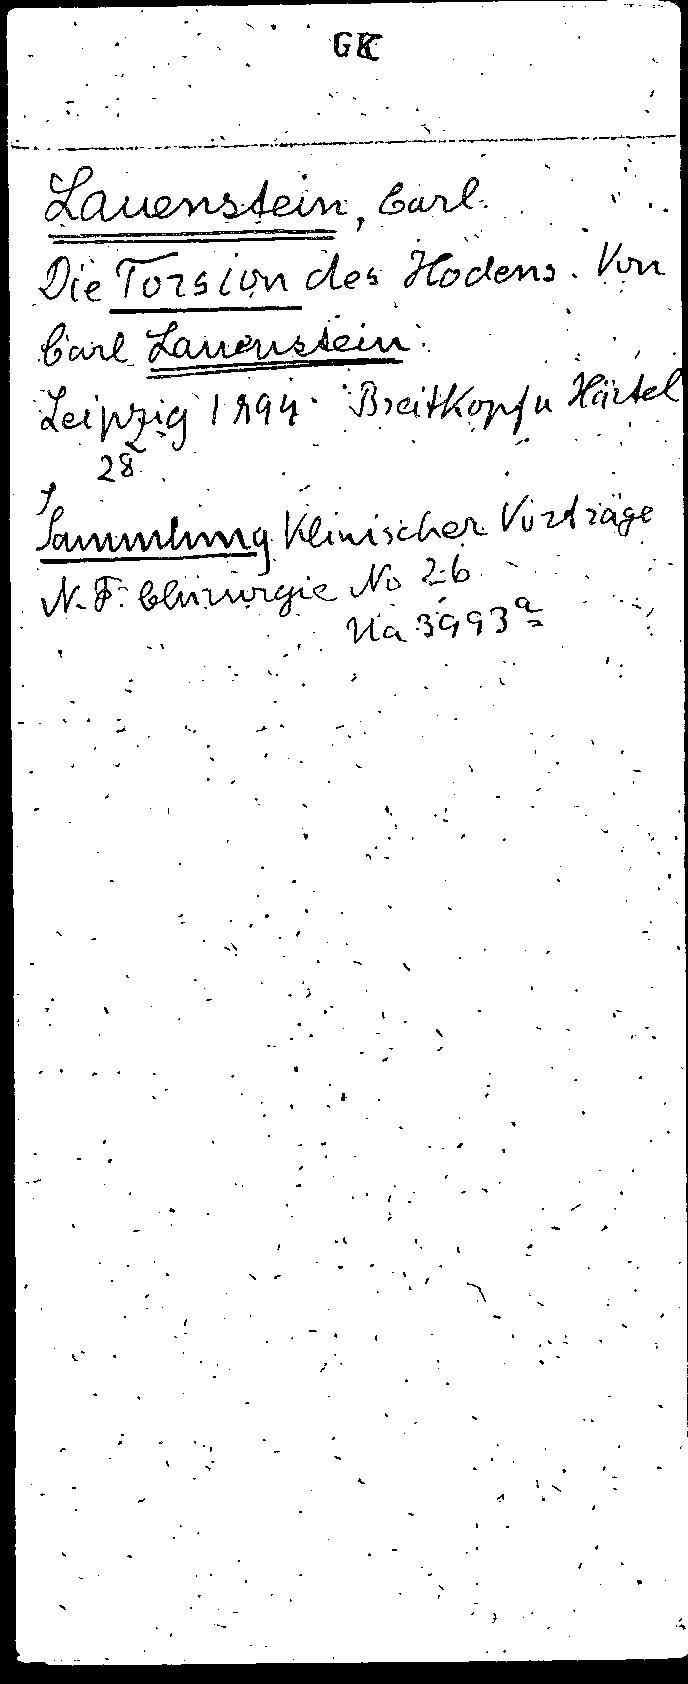 GK
Lauenstein, Carl.
Die Torsion des Hodens. Von
Carl Lauenstein.
Leipzig 1894. Breitkopf u Härtel
28
Sammlung Klinischer Vorträge
N. F. Chirurgie No 26
Ua 3993a